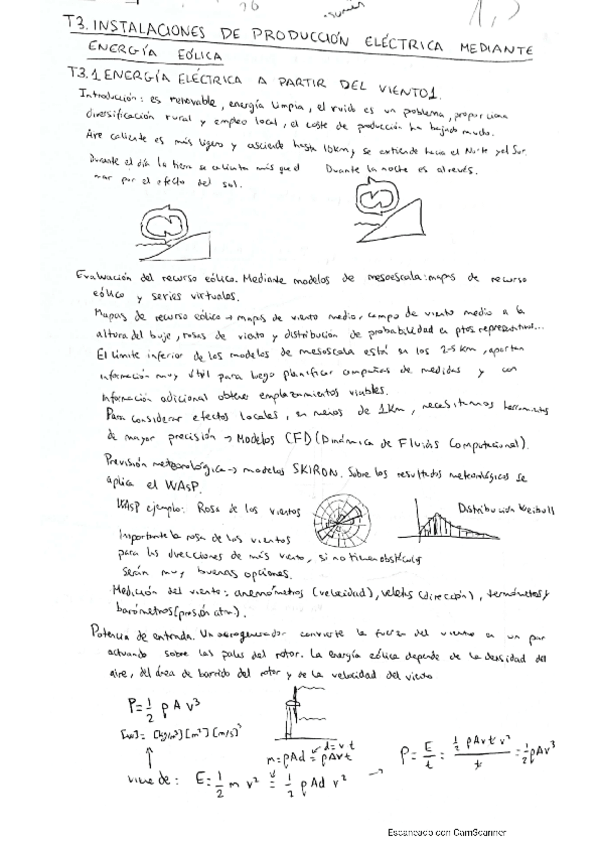 T3. INSTALACIONES DE PRODUCCIÓN ELÉCTRICA MEDIANTE
ENERGÍA EÓLICA
T3.1 ENERGÍA ELÉCTRICA A PARTIR DEL VIENTO 1.
Introducción: es renovable, energía limpia, el ruido es un problema, proporciona
diversificación rural y empleo local, el coste de producción ha bajado mucho.
Aire caliente es más ligero y asciende hasta 10km y se extiende hacia el Norte y el Sur.
Durante el día la tierra se calienta más que el
mar por el efecto del sol.
Durante la noche es al revés.
Evaluación del recurso eólico. Mediante modelos de mesoescala: mapas de recurso
eólico y series virtuales.
Mapas de recurso eólico → mapas de viento medio, campo de viento medio a la
altura del buje, rosas de viento y distribución de probabilidad en ptos representat...
El límite inferior de los modelos de mesoscala está en los 2-5 km, aportan
información muy útil para luego planificar campañas de medidas y con
información adicional obtener emplazamientos viables.
Para considerar efectos locales, en menos de 1Km, necesitamos herramientas
de mayor precisión → Modelos CFD (Dinámica de Fluidos Computacional).
Previsión meteorológica → modelos SKIRON. Sobre los resultados meteorológicos se
aplica el WAsP.
WAsP ejemplo: Rosa de los vientos
Distribución Weibull
Importante la rosa de los vientos
para las direcciones de más viento, si no tienen obstáculos
serán muy buenas opciones.
Medición del viento: anemómetros (velocidad), veletas (dirección), termómetros y
barómetros (presión atm).
Potencia de entrada. Un aerogenerador convierte la fuerza del viento en un par
actuando sobre las palas del rotor. La energía eólica depende de la densidad del
aire, del área de barrido del rotor y de la velocidad del viento
P = 1/2 ρ A v³
[w] = [kg/m³] [m²] [m/s]³
d = v t
m = ρAd = ρAvt
viene de: E = 1/2 m v² = 1/2 ρAd v² → P = E/t = 1/2 ρAvt v² / t = 1/2 ρAv³
Escaneado con CamScanner